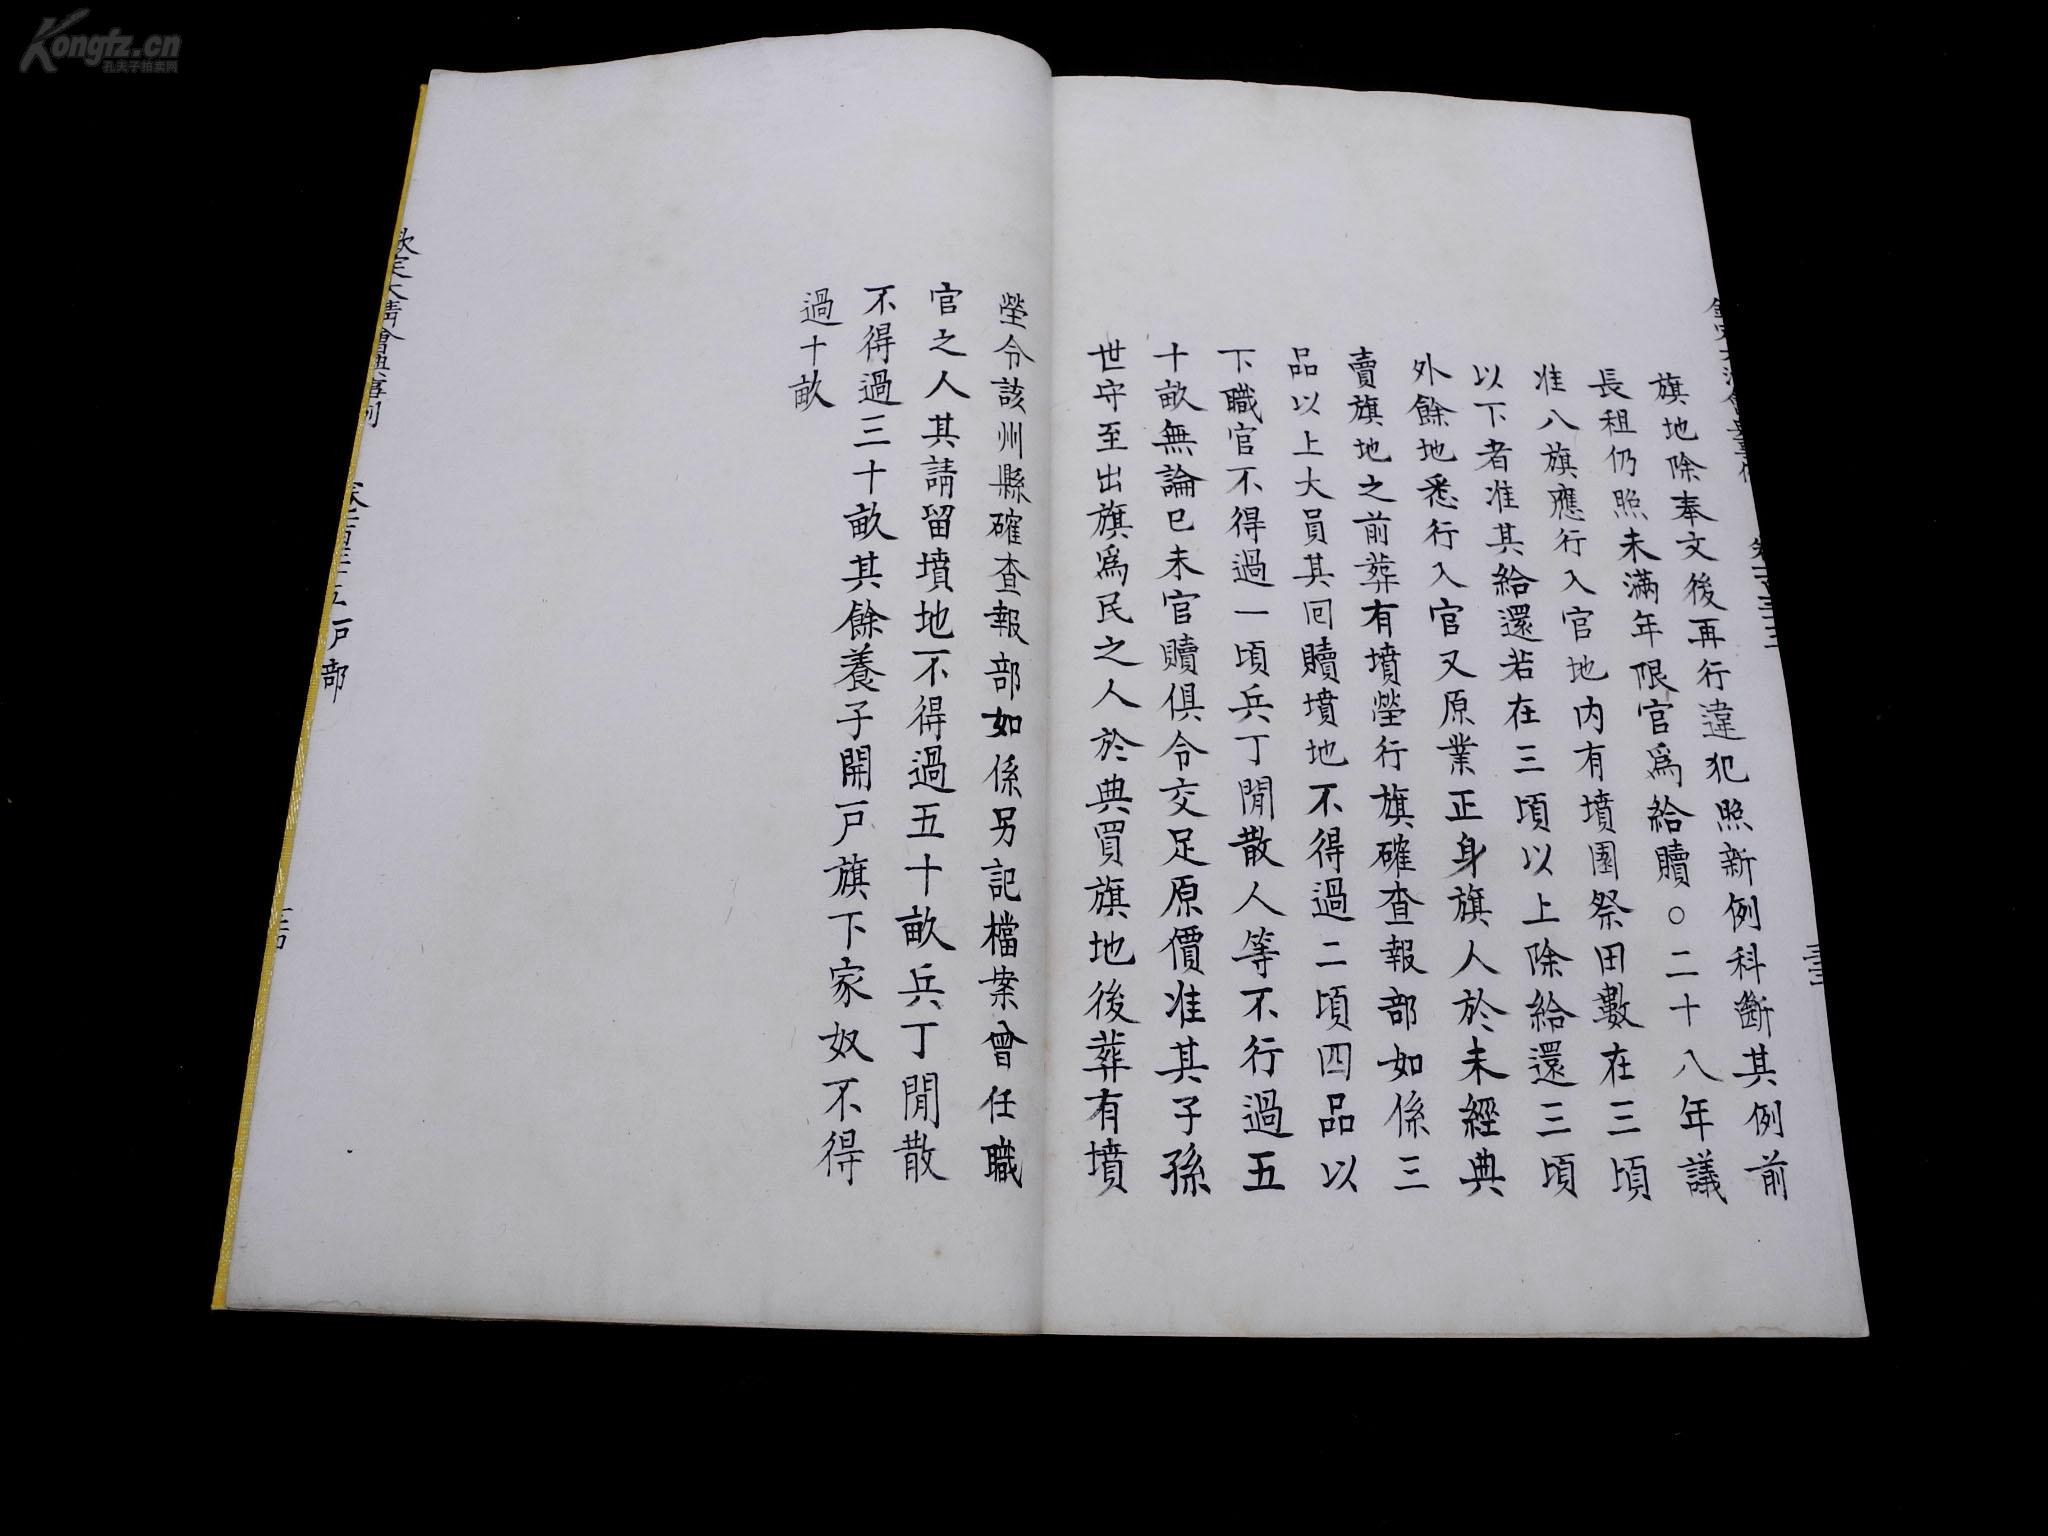 Kongfz.cn
孔夫子拍卖网
旗地除奉文後再行違犯照新例科斷其例前
長租仍照未滿年限官爲給贖○二十八年議
准八旗應行入官地內有墳園祭田數在三頃
以下者准其給還若在三頃以上除給還三頃
外餘地悉行入官又原業正身旗人於未經典
賣旗地之前葬有墳塋行旗確查報部如係三
品以上大員其回贖墳地不得過二頃四品以
下職官不得過一頃兵丁閒散人等不行過五
十畝無論已未官贖俱令交足原價准其子孫
世守至出旗爲民之人於典買旗地後葬有墳
塋令該州縣確查報部如係另記檔案曾任職
官之人其請留墳地不得過五十畝兵丁閒散
不得過三十畝其餘養子開戶旗下家奴不得
過十畝
欽定大清會典事例
戶部